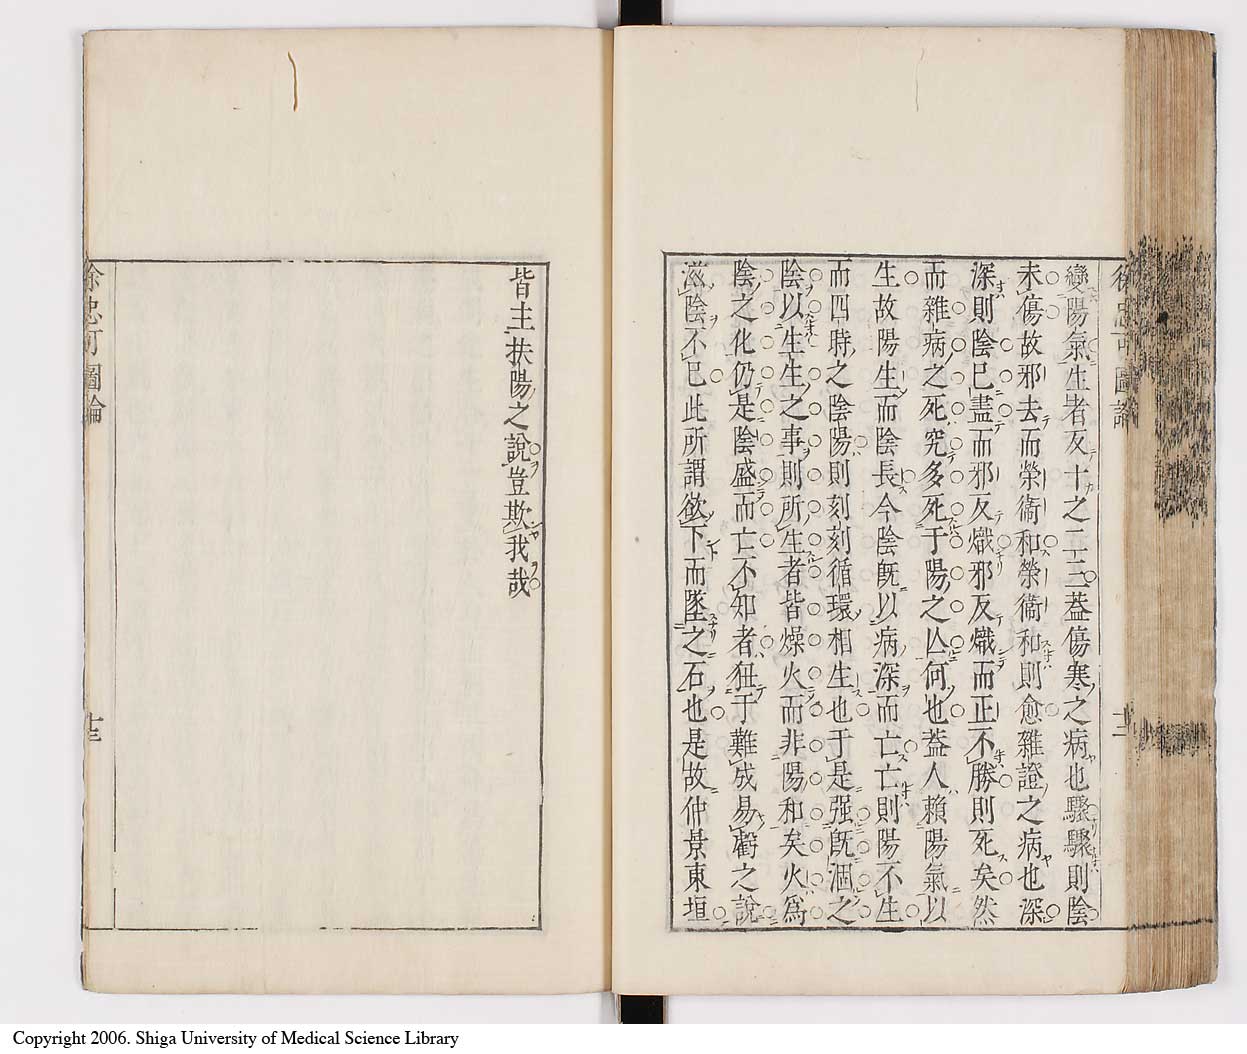 變陽氣生者反十之二三蓋傷寒之病也驟驟則陰
未傷故邪去而榮衞和榮衞和則愈雜證之病也深
深則陰已盡而邪反熾邪反熾而正不勝則死矣然
而雜病之死究多死于陽之亾何也葢人賴陽氣以
生故陽生而陰長今陰旣以病深而亡亡則陽不生
而四時之陰陽則刻刻循環相生也于是强旣涸之
陰以生生之事則所生者皆燥火而非陽和矣火爲
陰之化仍是陰盛而亡不知者狃于難成易虧之說
滋陰不已此所謂欲下而墜之石也是故仲景東垣
皆主扶陽之說豈欺我哉
徐忠可圖論
十三
Copyright 2006. Shiga University of Medical Science Library